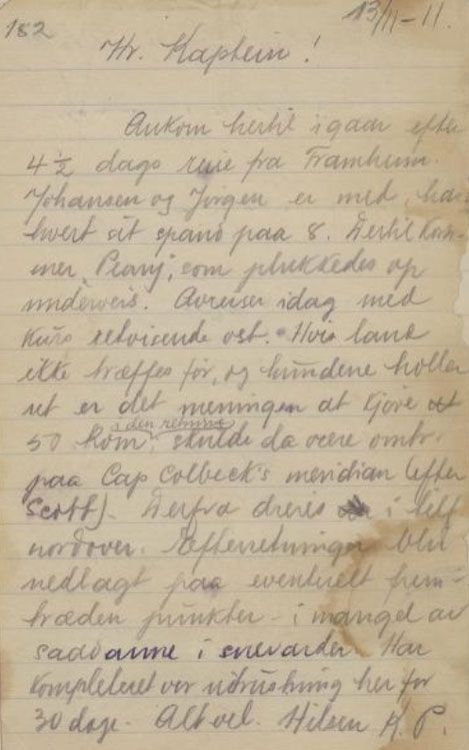 182
13/11-11.
Hr. Kaptein!
Ankom hertil igaar efter
4½ dags reise fra Framheim.
Johansen og Jørgen er med, har
hvert sit spand paa 8. Dertil kom-
mer "Peary", som plukkedes op
underveis. Avreiser idag med
kurs retvisende ost. Hvis land
ikke træffes før, og hundene holder
ut er det meningen at kjøre
i den retning
50 kvm. skulde da være omtr.
paa Cap Colbeck's meridian (efter
Scott). Derfra dreies i tilf
nordover. Efterretninger blir
nedlagt paa eventuelt frem-
træden punkter - i mangel av
saadanne i snevarder. Har
kompleteret vor utrustning her for
30 dage. Alt vel. Hilsen K. P.